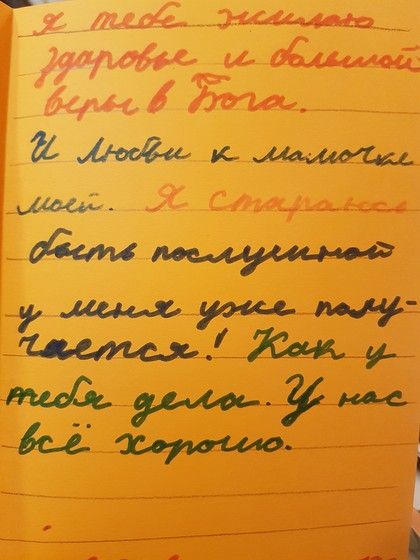 я тебе жилаю
здаровье и большой
веры в Бога.
И любви к мамочке
моей. Я стараюсь
быть послушной
у меня уже полу-
чается! Как у
тебя дела. У нас
всё хорошо.